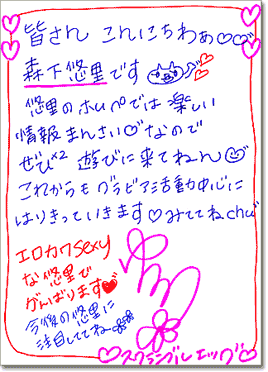 皆さん こんにちわぁ♡♡
森下悠里です
悠里のホムペでは楽しい
情報まんさい♡なので
ぜひ×2 遊びに来てねん♡
これからもグラビア活動中心に
はりきっていきます♡みててねchu♡
エロカワsexy
な悠里で
がんばります♥
今後の悠里に
注目しててね
♡スクランブルエッグ♡